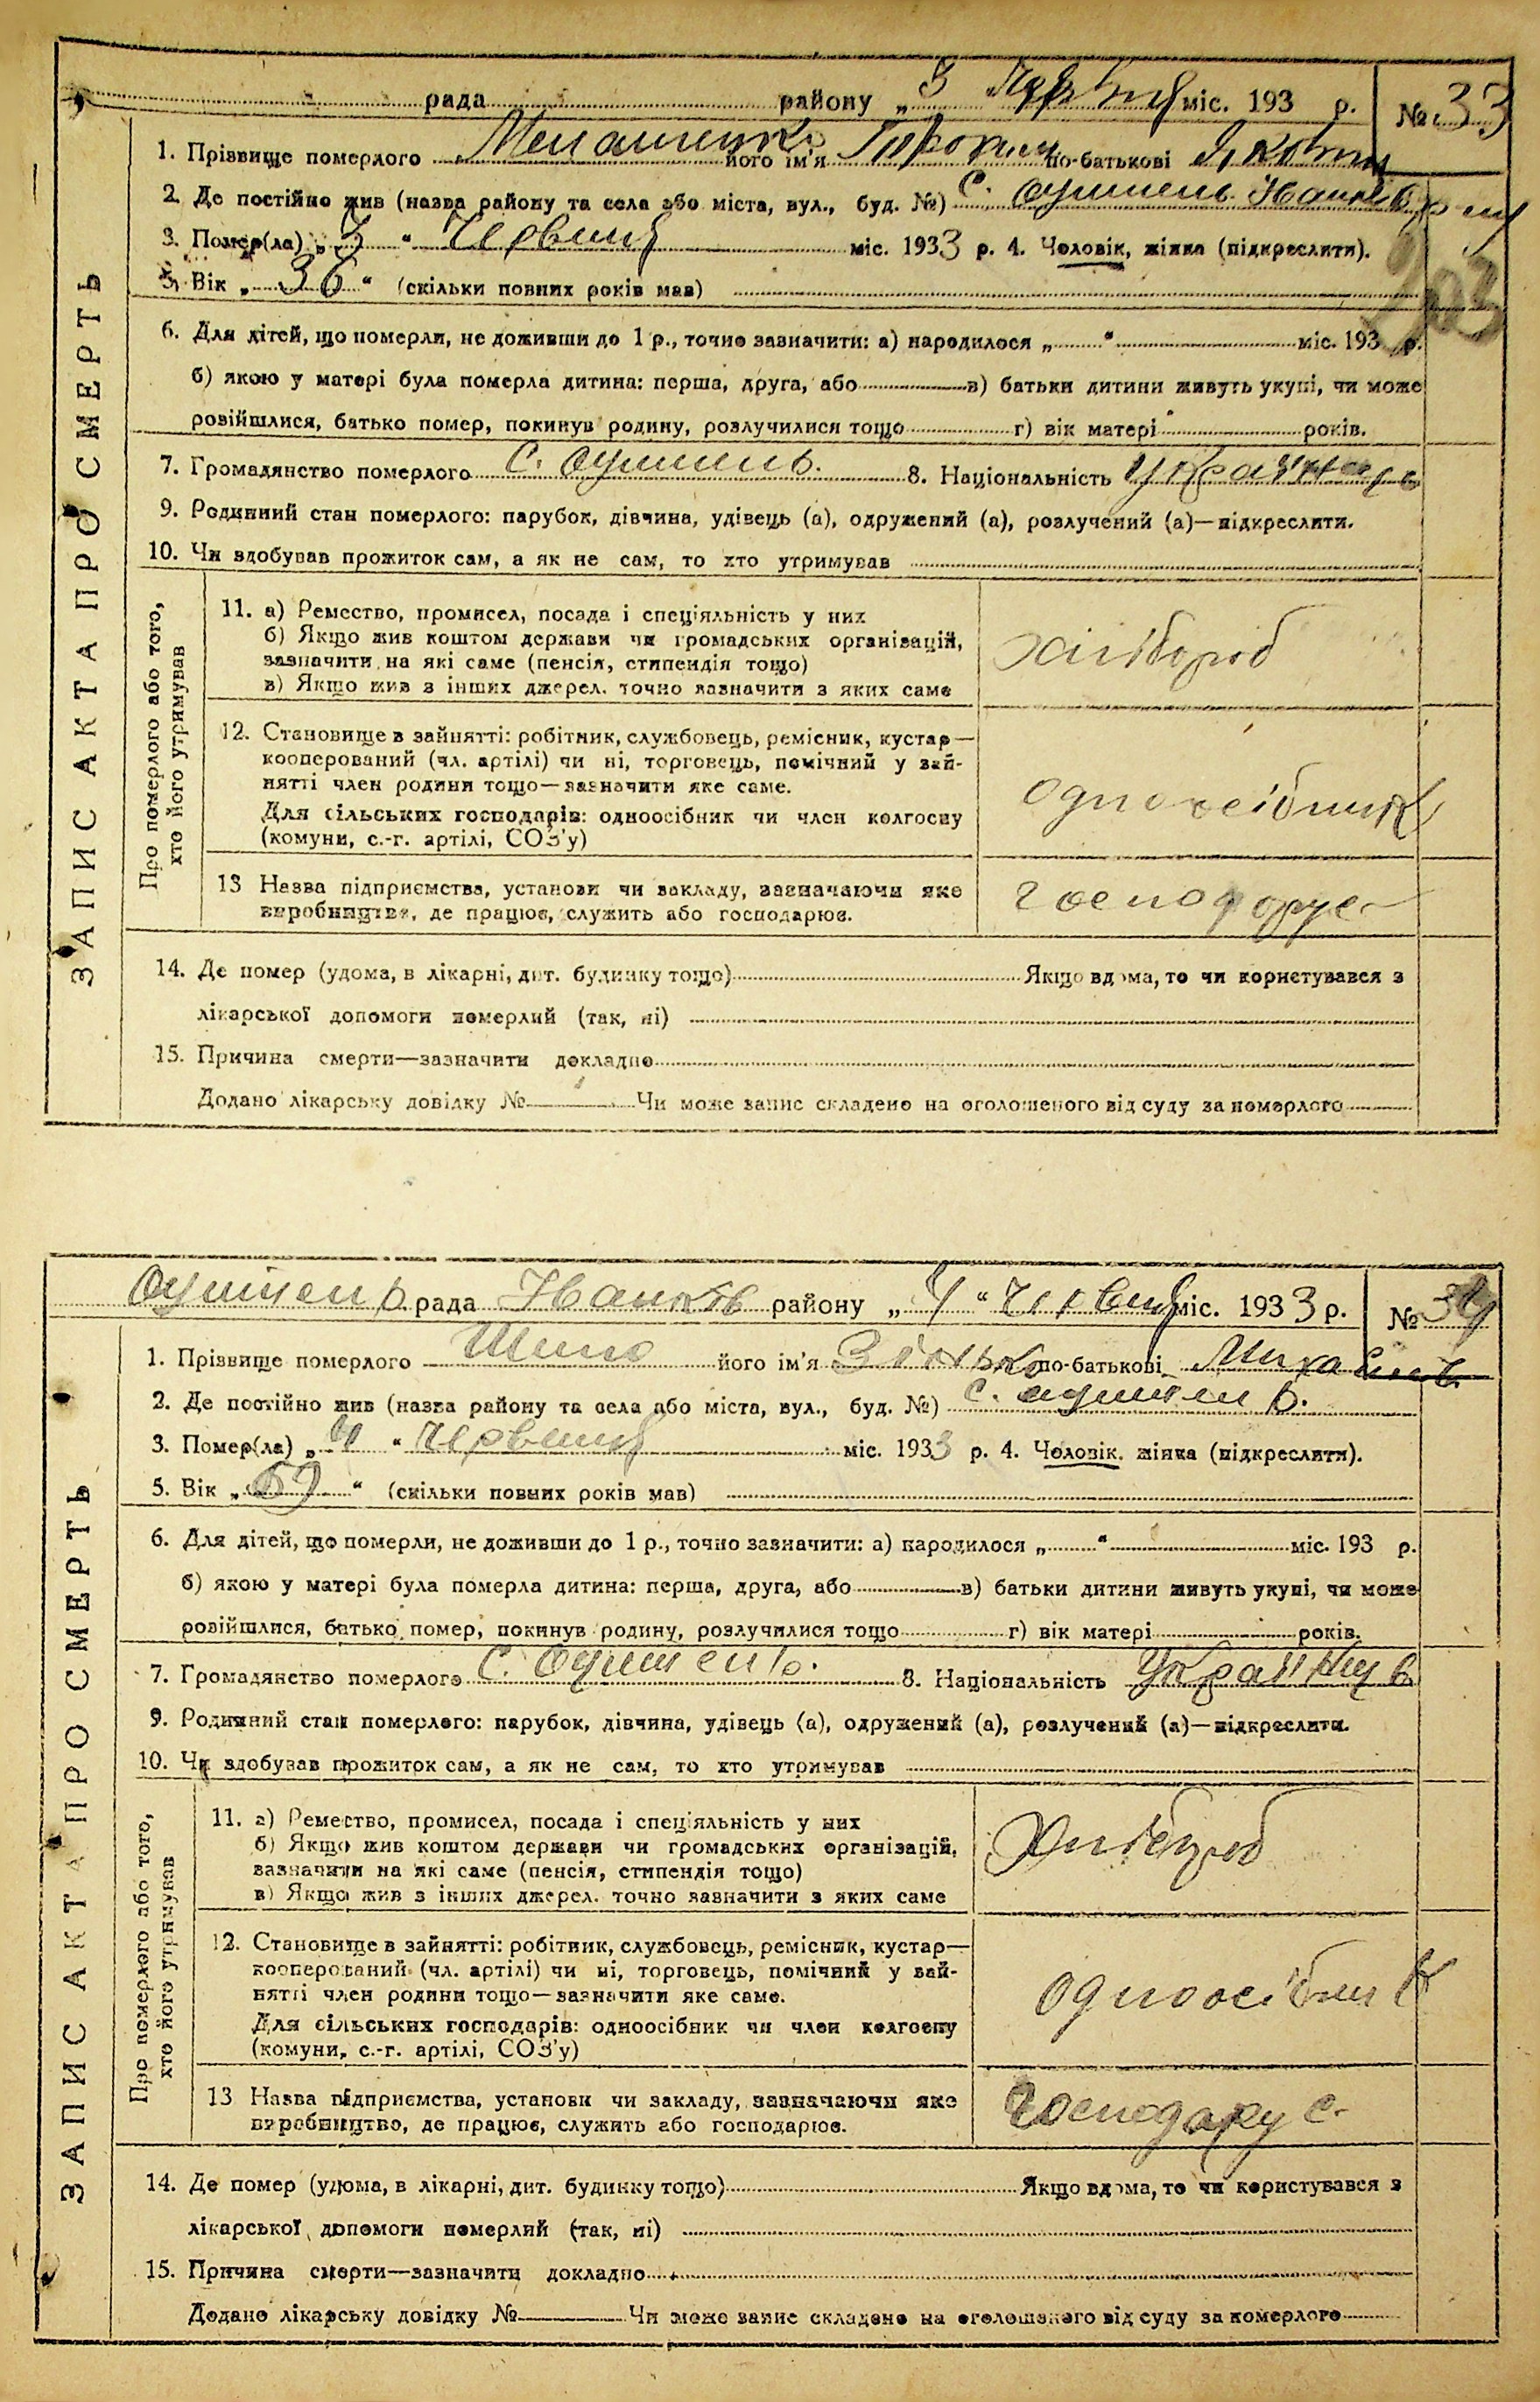 рада району „3 Червня міс. 193 р. № 33
1. Прізвище померлого його ім'я по-батькові
2. Де постійно жив (назва району та села або міста, вул., буд. №) С.
3. Помер(ла) „3" Червня міс. 1933 р. 4. Чоловік, жінка (підкреслити).
5. Вік „36" (скільки повних років мав)
6. Для дітей, що померли, не доживши до 1 р., точно зазначити: а) народилося „ " міс. 193 р.
б) якою у матері була померла дитина: перша, друга, або в) батьки дитини живуть укупі, чи може
розійшлися, батько помер, покинув родину, розлучилися тощо г) вік матері років.
7. Громадянство померлого С. 8. Національність Українець
9. Родинний стан померлого: парубок, дівчина, удівець (а), одружений (а), розлучений (а)—підкреслити.
10. Чи здобував прожиток сам, а як не сам, то хто утримував
ЗАПИС АКТА ПРО СМЕРТЬ
Про померлого або того,
хто його утримував
11. а) Ремество, промисел, посада і спеціяльність у них
б) Якщо жив коштом держави чи громадських організацій,
зазначити на які саме (пенсія, стипендія тощо)
в) Якщо жив з інших джерел. точно зазначити з яких саме
хлібороб
12. Становище в зайнятті: робітник, службовець, ремісник, кустар—
кооперований (чл. артілі) чи ні, торговець, помічний у зай-
нятті член родини тощо—зазначити яке саме.
Для сільських господарів: одноосібник чи член колгоспу
(комуни, с.-г. артілі, СОЗ'у)
одноосібник
13 Назва підприємства, установи чи закладу, зазначаючи яке
виробництво, де працює, служить або господарює.
господарує
14. Де помер (удома, в лікарні, дит. будинку тощо) Якщо вдома, то чи користувався з
лікарської допомоги померлий (так, ні)
15. Причина смерти—зазначити докладно
Додано лікарську довідку № Чи може запис складено на оголошеного від суду за померлого
рада Іванків району „4" Червня міс. 1933 р. № 34
1. Прізвище померлого його ім'я Зінько по-батькові
2. Де постійно жив (назва району та села або міста, вул., буд. №) С.
3. Помер(ла) „4" Червня міс. 1933 р. 4. Чоловік, жінка (підкреслити).
5. Вік „ " (скільки повних років мав)
6. Для дітей, що померли, не доживши до 1 р., точно зазначити: а) народилося „ " міс. 193 р.
б) якою у матері була померла дитина: перша, друга, або в) батьки дитини живуть укупі, чи може
розійшлися, батько помер, покинув родину, розлучилися тощо г) вік матері років.
7. Громадянство померлого С. 8. Національність
9. Родинний стан померлого: парубок, дівчина, удівець (а), одружений (а), розлучений (а)—підкреслити.
10. Чи здобував прожиток сам, а як не сам, то хто утримував
ЗАПИС АКТА ПРО СМЕРТЬ
Про померлого або того,
хто його утримував
11. а) Ремество, промисел, посада і спеціяльність у них
б) Якщо жив коштом держави чи громадських організацій,
зазначити на які саме (пенсія, стипендія тощо)
в) Якщо жив з інших джерел. точно зазначити з яких саме
Хлібороб
12. Становище в зайнятті: робітник, службовець, ремісник, кустар—
кооперований (чл. артілі) чи ні, торговець, помічний у зай-
нятті член родини тощо—зазначити яке саме.
Для сільських господарів: одноосібник чи член колгоспу
(комуни, с.-г. артілі, СОЗ'у)
одноосібник
13 Назва підприємства, установи чи закладу, зазначаючи яке
виробництво, де працює, служить або господарює.
господарує
14. Де помер (удома, в лікарні, дит. будинку тощо) Якщо вдома, то чи користувався з
лікарської допомоги померлий (так, ні)
15. Причина смерти—зазначити докладно
Додано лікарську довідку № Чи може запис складено на оголошеного від суду за померлого